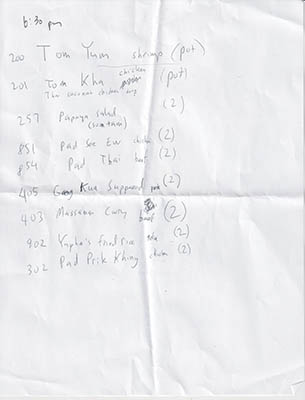 6:30 pm
200 Tom Yum shrimp (pot)
201 Tom Kha chicken (pot)
Thai coconut chicken soup
257 Papaya salad (2)
(somtam)
851 Pad See Ew chicken (2)
854 Pad Thai beef (2)
405 Gang Kua Supparod pork (2)
403 Massaman Curry beef (2)
902 fried rice tofu (2)
302 Pad Prik Khing chicken (2)